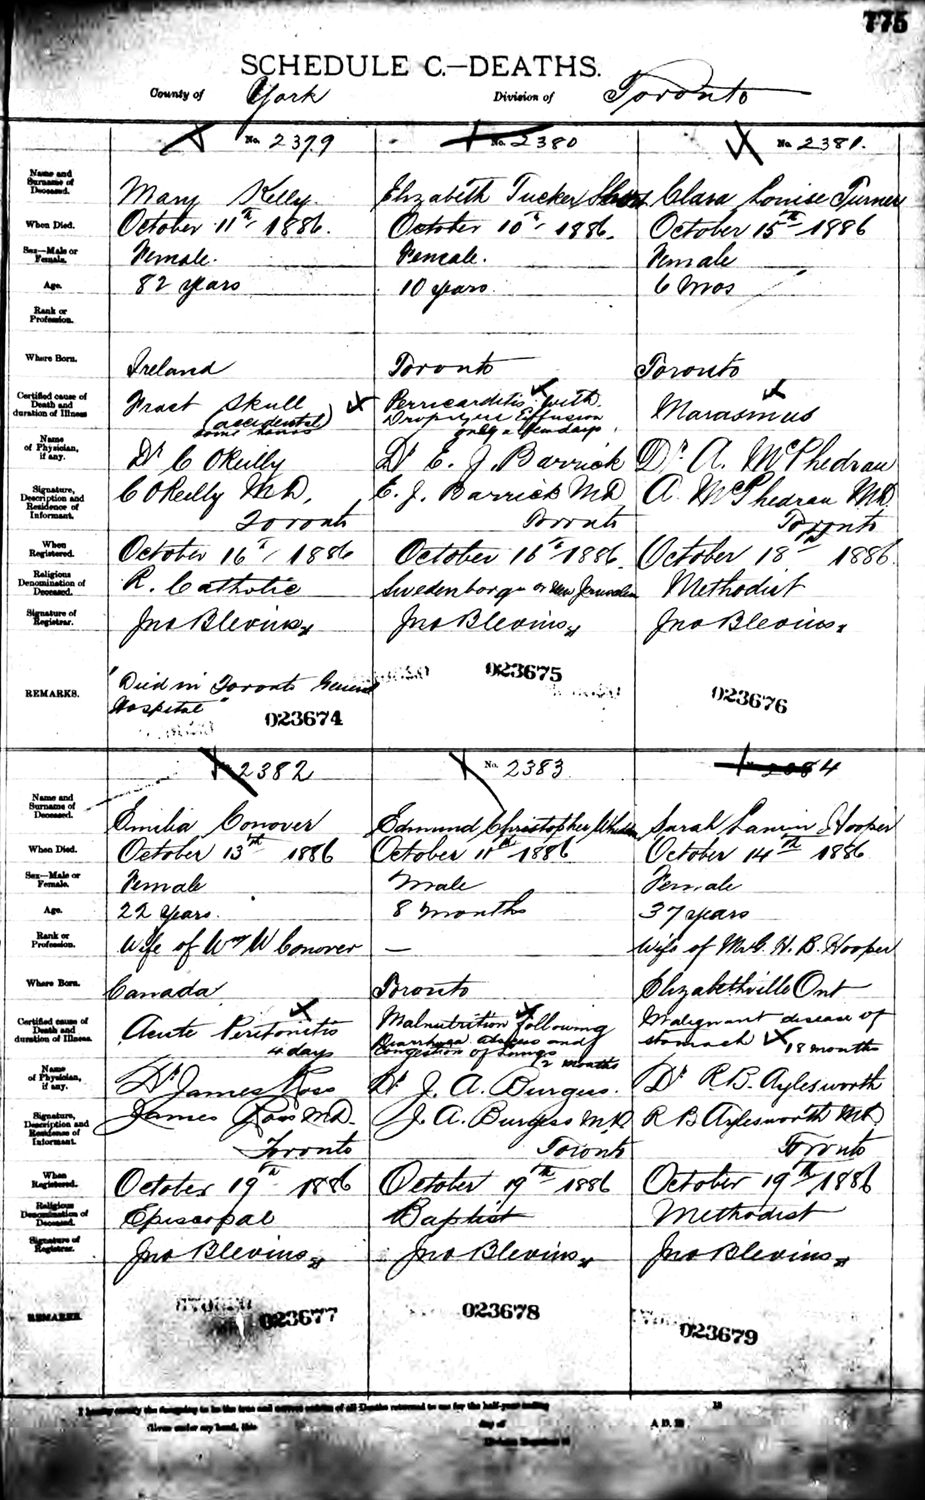 775
SCHEDULE C.—DEATHS.
County of York Division of Toronto
No. 2379 No. 2380 No. 2381.
Name and Surname of Deceased. Mary Kelly Elizabeth Tucker Clara Louise Turner
When Died. October 11th 1886. October 10th 1886. October 15th 1886
Sex—Male or Female. Female. Female. Female
Age. 82 years 10 years 6 mos
Rank or Profession.
Where Born. Ireland Toronto Toronto
Certified cause of Death and duration of Illness Fract Skull (accidental) some hours Perricarditis with Dropsycal Effusion only a few days. Marasmus
Name of Physician, if any. Dr C OReilly Dr E. J. Barrick Dr. A. McPhedran
Signature, Description and Residence of Informant. C OReilly M.D. Toronto E. J. Barrick MD Toronto A McPhedran M.D. Toronto
When Registered. October 16th 1886 October 16th 1886. October 18th 1886.
Religious Denomination of Deceased. R. Catholic Swedenborgn or New Jerusalem Methodist
Signature of Registrar. Jno Blevins Jno Blevins Jno Blevins
REMARKS. "Died in Toronto General Hospital" 023674 023675 023676
2382 No. 2383 2384
Name and Surname of Deceased. Emilia Conover Edmund Christopher Sarah Hooper
When Died. October 13th 1886 October 11th 1886 October 14th 1886
Sex—Male or Female. Female Male Female
Age. 22 Years. 8 months 37 years
Rank or Profession. Wife of Wm W Conover — Wife of Mr G. H. B. Hooper
Where Born. Canada Toronto Elizabethville Ont
Certified cause of Death and duration of Illness. Acute Peritonitis 4 days Malnutrition following Diarrhoea Abscess and Congestion of Lungs 2 months Malignant disease of stomach 18 months
Name of Physician, if any. Dr James Ross Dr J. A. Burgess. Dr R. B. Aylesworth
Signature, Description and Residence of Informant. James Ross MD. Toronto J. A. Burgess M.D. Toronto R B Aylesworth MD Toronto
When Registered. October 19th 1886 October 19th 1886 October 19th 1886
Religious Denomination of Deceased. Episcopal Baptist Methodist
Signature of Registrar. Jno Blevins Jno Blevins Jno Blevins
REMARKS. 023677 023678 023679
I hereby certify the foregoing to be the true and correct entries of all Deaths returned to me for the half-year ending 18
Given under my hand, this day of A.D. 18